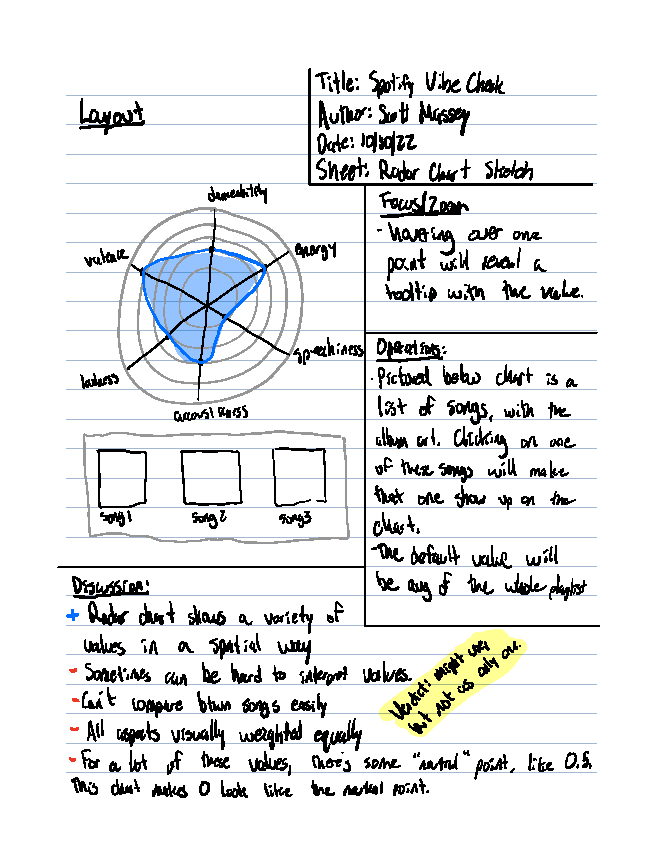 Layout
Title: Spotify Vibe Check
Author: Scott Massey
Date: 10/10/22
Sheet: Radar Chart Sketch
danceability
energy
valence
speechiness
loudness
acousticness
song 1
song 2
song 3
Focus/Zoom
- hovering over one
point will reveal a
tooltip with the value.
Operations:
- Pictured below chart is a
list of songs, with the
album art. Clicking on one
of these songs will make
that one show up on the
chart.
- The default value will
be avg of the whole playlist
Discussion:
+ Radar chart shows a variety of
values in a spatial way
- Sometimes can be hard to interpret values.
- Can't compare btwn songs easily
- All aspects visually weighted equally
- For a lot of these values, there's some "neutral" point, like 0.5.
This chart makes 0 look like the neutral point.
Verdict: might use,
but not as only one.